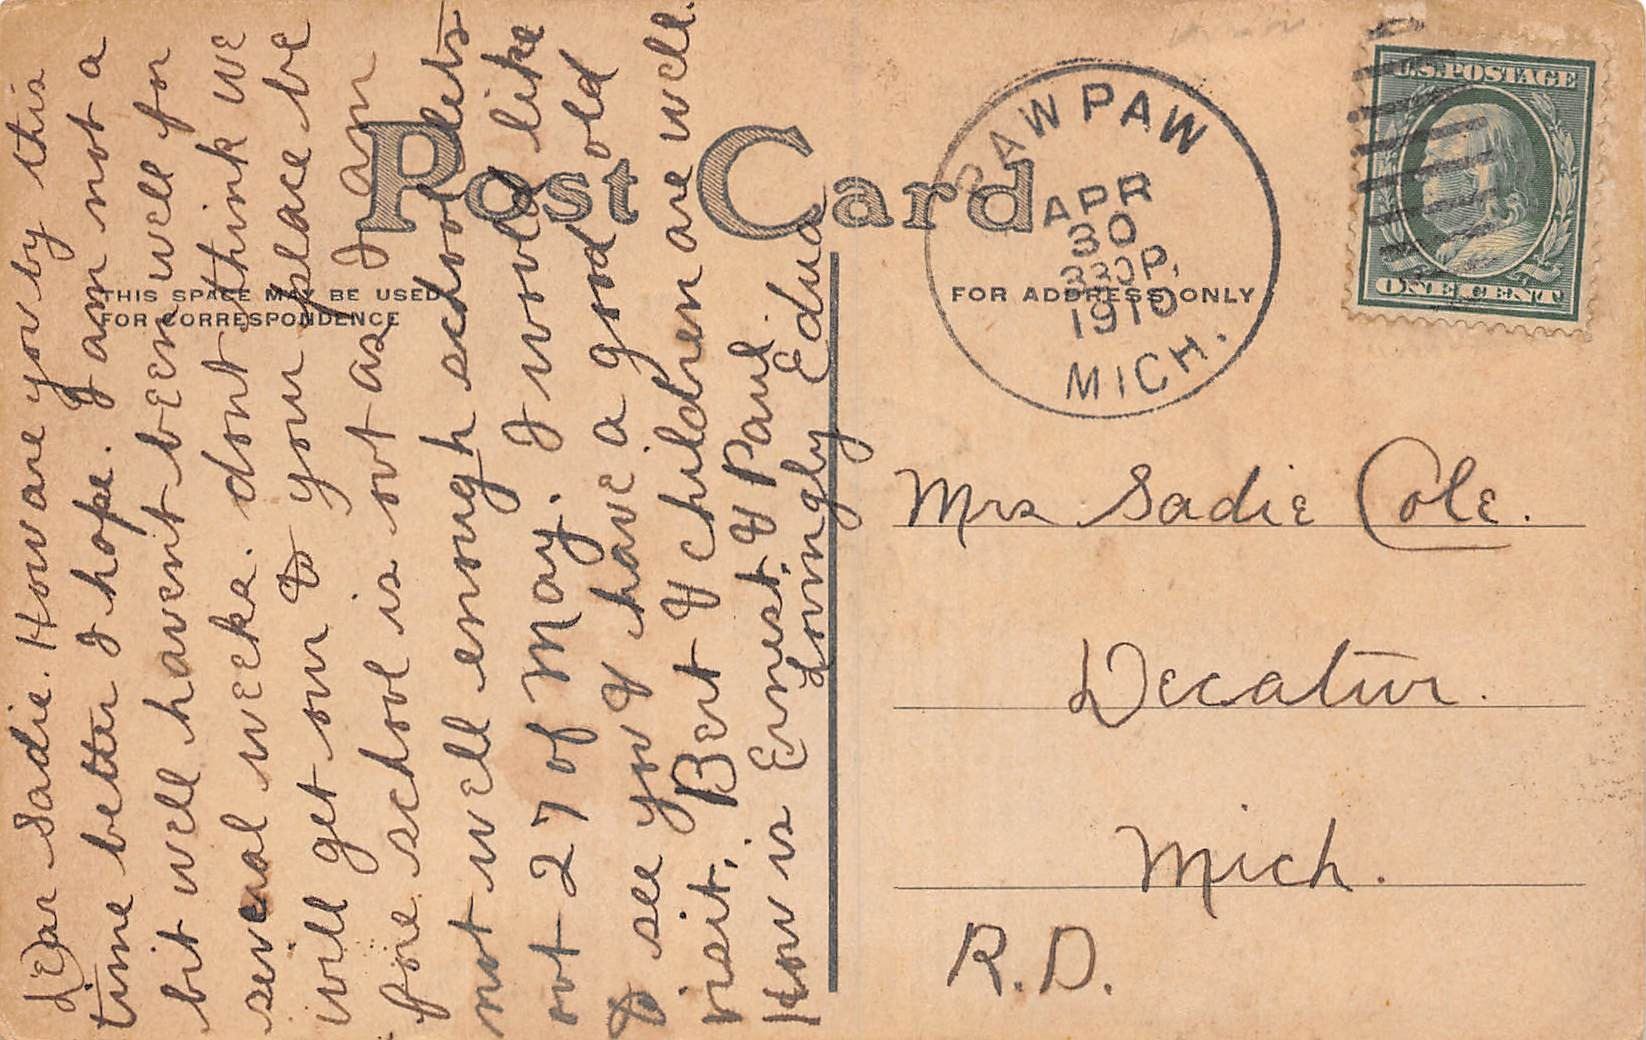 Dear Sadie. How are you by this
time better I hope. I am not a
bit well havent been well for
several weeks. dont think we
will get over to your place be
fore school is out as I am
not well enough school lets
out 27 of May. I would like
to see you & have a good old
visit. Bert & children are well.
How is Ernest. & Paul.
Lovingly Edna
Post Card
THIS SPACE MAY BE USED
FOR CORRESPONDENCE
FOR ADDRESS ONLY
PAW PAW
APR
30
330P.
1910
MICH.
U.S. POSTAGE
ONE CENT
Mrs Sadie Cole.
Decatur.
Mich.
R.D.